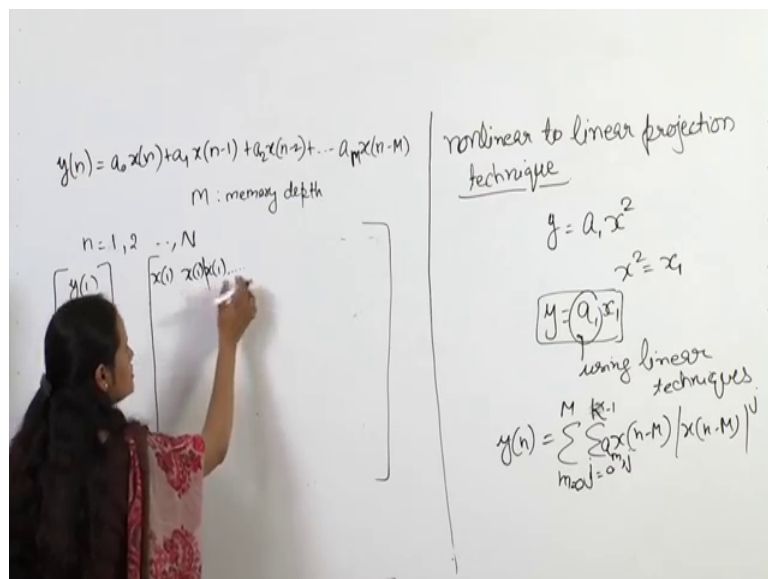 y(n) = a₀x(n)+a₁x(n-1)+a₂x(n-2)+... a_M x(n-M)
M : memory depth
n=1,2 ..,N
y(1)
x(1) x(1)|x(1).....
nonlinear to linear projection
technique
y = a₁x²
x² = x₁
y = a₁x₁
using linear
techniques
y(n) = Σ Σ a x(n-M) |x(n-M)|^j